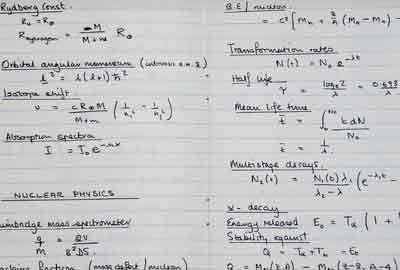 Rydberg Const.
R₀ = R∞
R hydrogen = M / M + m R∞
Orbital angular momentum (intrinsic
l² = l(l+1)ħ²
Isotope shift.
υ = cR∞M / M+m (1/n₁² - 1/n₂²)
Absorption spectra
I = I₀e
NUCLEAR PHYSICS
Bainbridge mass spectrometer
q/m = 2V / B²DS
fraction (mass defect / nucleon)
B.E / nucleon
= c² [Mn + Z/A (MH - Mn) -
Transformation rates
N(t) = N₀ e^-λt
Half life
τ = loge2 / λ = 0.693 / λ
Mean life time
t̄ = ∫₀^N₀ t dN / N₀
t̄ = 1/λ
Multistage decays.
N₂(t) = N₁(0)λ₁ / λ₂ - λ (e^-λ₁t -
α - decay
Energy released E₀ = Tα (1 +
Stability against
Q = Tα + Tb = E₀
Q = M (Z,A) - M (Z-2, A-4)